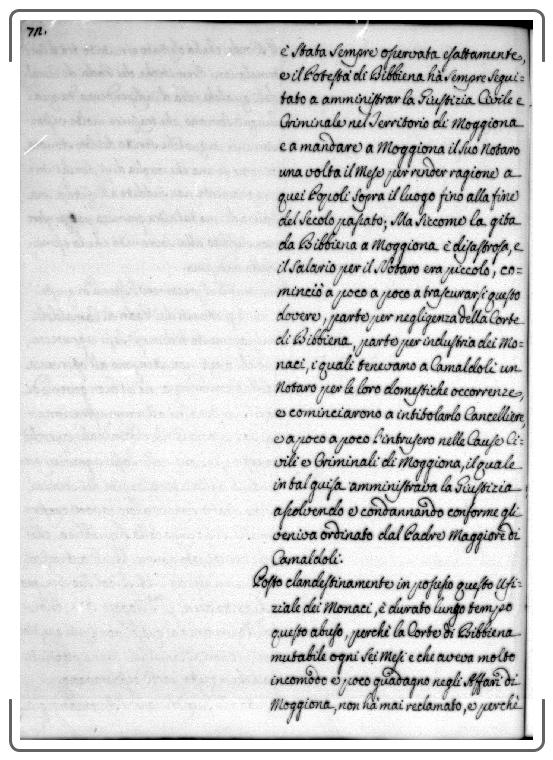 72.
è stata sempre osservata esattamente,
e il Potestà di Bibbiena ha sempre segui=
tato a amministrar la Giustizia Civile e
Criminale nel Territorio di Moggiona
e a mandare a Moggiona il suo Notaro
una volta il Mese per render ragione a
quei Popoli sopra il luogo fino alla fine
del Secolo passato; Ma siccome la gita
da Bibbiena a Moggiona è disastrosa, e
il Salario per il Notaro era piccolo, co=
minciò a poco a poco a trascurarsi questo
dovere, parte per negligenza della Corte
di Bibbiena, parte per industria dei Mo=
naci, i quali tenevano a Camaldoli un
Notaro per le loro domestiche occorrenze,
e cominciarono a intitolarlo Cancelliere,
e a poco a poco l'intrusero nelle Cause Ci=
vili e Criminali di Moggiona, il quale
in tal guisa amministrava la Giustizia
assolvendo e condannando conforme gli
veniva ordinato dal Padre Maggiore di
Camaldoli.
Posto clandestinamente in possesso questo Ufi=
ziale dei Monaci, è durato lungo tempo
questo abuso, perchè la Corte di Bibbiena
mutabile ogni sei Mesi e che aveva molto
incomodo e poco guadagno negli Affari di
Moggiona, non ha mai reclamato, e perchè